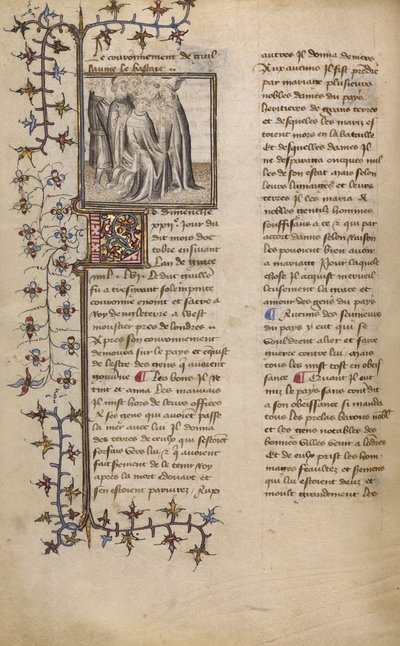 Le couronnement de guil
laume le bastart
Le dimenche
xxii. jour du
dit mois doc
tobre ensuiant
lan de grace
Le duc guille
fu a tres grant solempnite
couronne enoint et sacre a
Roy dengleterre a West
moustier pres de londres
Apres son couronnement
demoura sur le pays et enquist
de lestre des gens qui avoient
gouverne Les bons il re
tint et ama Les mauvais
il mist hors de leurs offices
A ses gens qui avoient passe
la mer avec lui il donna
des terres de ceulx qui sestoient
forfais vers lui et qui avoient
fait serement de le tenir Roy
apres la mort edouart et
sen estoient parjurez Aux
autres il donna deniers
Aux aucuns il fist prendre
par mariage plusieurs
nobles dames du pays
heritieres de grans terres
et desqueles les maris es
toient mors en la bataille
Et desquelles dames il
ne desparaga oncques nul
les de son estat mais selon
leurs linnages et leurs
terres il les maria a
nobles gentilz hommes
souffisans a ce et qui par
accort damis selon raison
les pouoient bien avoir
a mariage Pour laquele
chose il acquist merveil
leusement la grace et
amour des gens du pays
Aucuns des
du pays y eut qui se
vouldrent alier et faire
guerre contre lui mais
tous les mist tost en obeis
sance Quant il eut
mis le pays sans contredit
a son obeissance si manda
tous les prelas barons nobles
et les gens notables des
bonnes villes venir a londres
Et de eulx prist les hom
mages feaultez et
qui lui estoient deuz et
moult grandement les